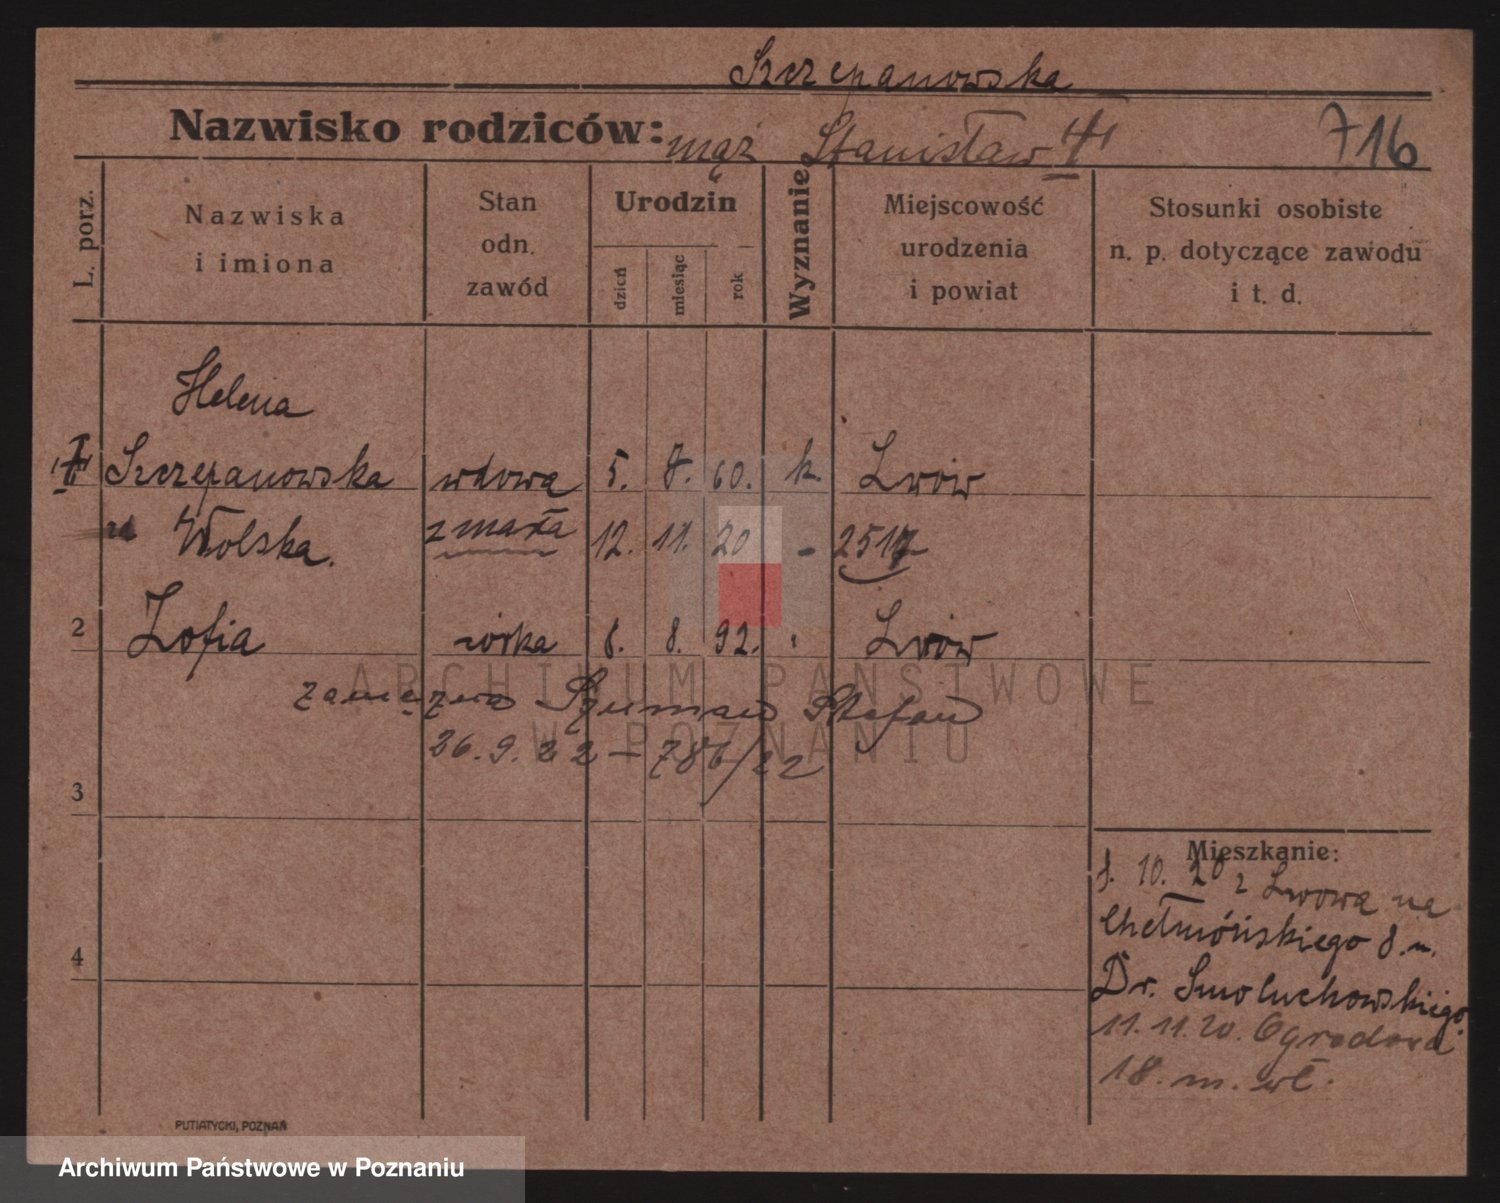 Szczepanowska
Nazwisko rodziców: mąż Stanisław
716
L. porz.
Nazwiska
i imiona
Stan
odn.
zawód
Urodzin
dzień
miesiąc
rok
Wyznanie
Miejscowość
urodzenia
i powiat
Stosunki osobiste
n. p. dotyczące zawodu
i t. d.
Helena
Szczepanowska wdowa 5. 7. 60. k. Lwów
Wolska. zmarła 12. 11. 20 - 2517
2 Zofia córka 8. 8. 92. Lwów
zamężna Szuman Stefan
26.9.22 — 786/22
3
4
Mieszkanie:
8. 10. 20 z Lwowa na
Chełmóńskiego 8. m.
Dr. Smoluchowskiego.
11.11.20. Ogrodowa
18. m. wł.
PUTIATYCKI, POZNAŃ
ARCHIWUM PAŃSTWOWE
W POZNANIU
Archiwum Państwowe w Poznaniu